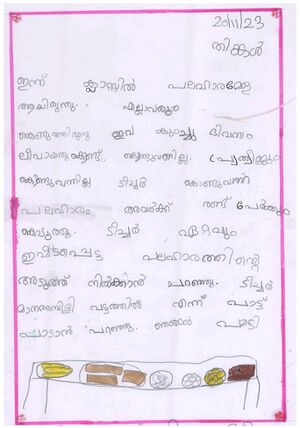 20/11/23
തിങ്കൾ
ഇന്ന് ക്ലാസിൽ പലഹാരമേള
ആയിരുന്നു. എല്ലാവരും
കൊണ്ടുവന്നിരുന്നു ഇവ കുറച്ചു ദിവസം
ലീവായതുകൊണ്ട്. കൊണ്ടുവന്നില്ല.
കൊണ്ടുവന്നില്ല ടീച്ചർ കൊണ്ടുവന്ന
പലഹാരം, അവർക്ക് രണ്ട് പേർക്കും
കൊടുത്തു. ടീച്ചർ ഏറ്റവും
ഇഷ്ടപ്പെട്ട പലഹാരത്തിന്റെ
അടുത്ത് നിൽക്കാൻ പറഞ്ഞു. ടീച്ചർ
പട്ടത്തിൽ എന്ന് പാട്ട്
പാടാൻ പറഞ്ഞു. ഞങ്ങൾ പാടി